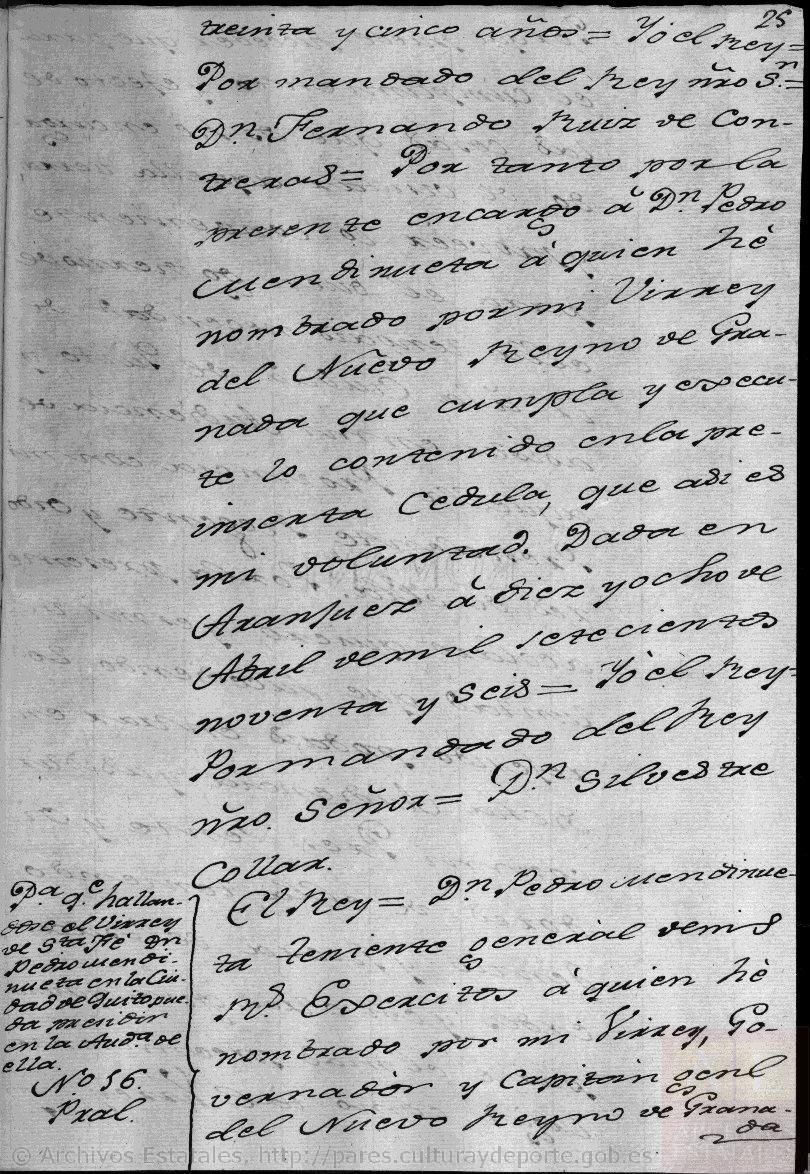 25
treinta y cinco años= Yó el Rey=
Por mandado del Rey ñro S.n=
Dn. Fernando Ruiz de Con-
treras= Por tanto por la
presente encargo â Dn Pedro
Mendinueta â quien hè
nombrado por mi Virrey
del Nuevo Reyno de Gra-
nada que cumpla y execu-
te lo contenido enla pre-
inserta Cedula, que asi es
mi voluntad. Dada en
Aranjuez â diez y ocho de
Abril demil setecientos
noventa y seis= Yò el Rey-
Por mandado del Rey
ñro. Señor= Dn Silvestre
Collar.
Pa. qe. hallan-
dose el Virrey
de Sta Fè Dn
Pedro Mendi-
nueta en la Ciu-
dad de Quito pue-
da presidir
en la Auda. de
ella.
No 56.
Pral.
El Rey= Dn Pedro Mendinue-
ta teniente general demis
Rs. Exercitos â quien hè
nombrado por mi Virrey, Go-
vernador y Capitan genl
del Nuevo Reyno de Grana-
da
© Archivos Estatales, http://pares.culturaydeporte.gob.es